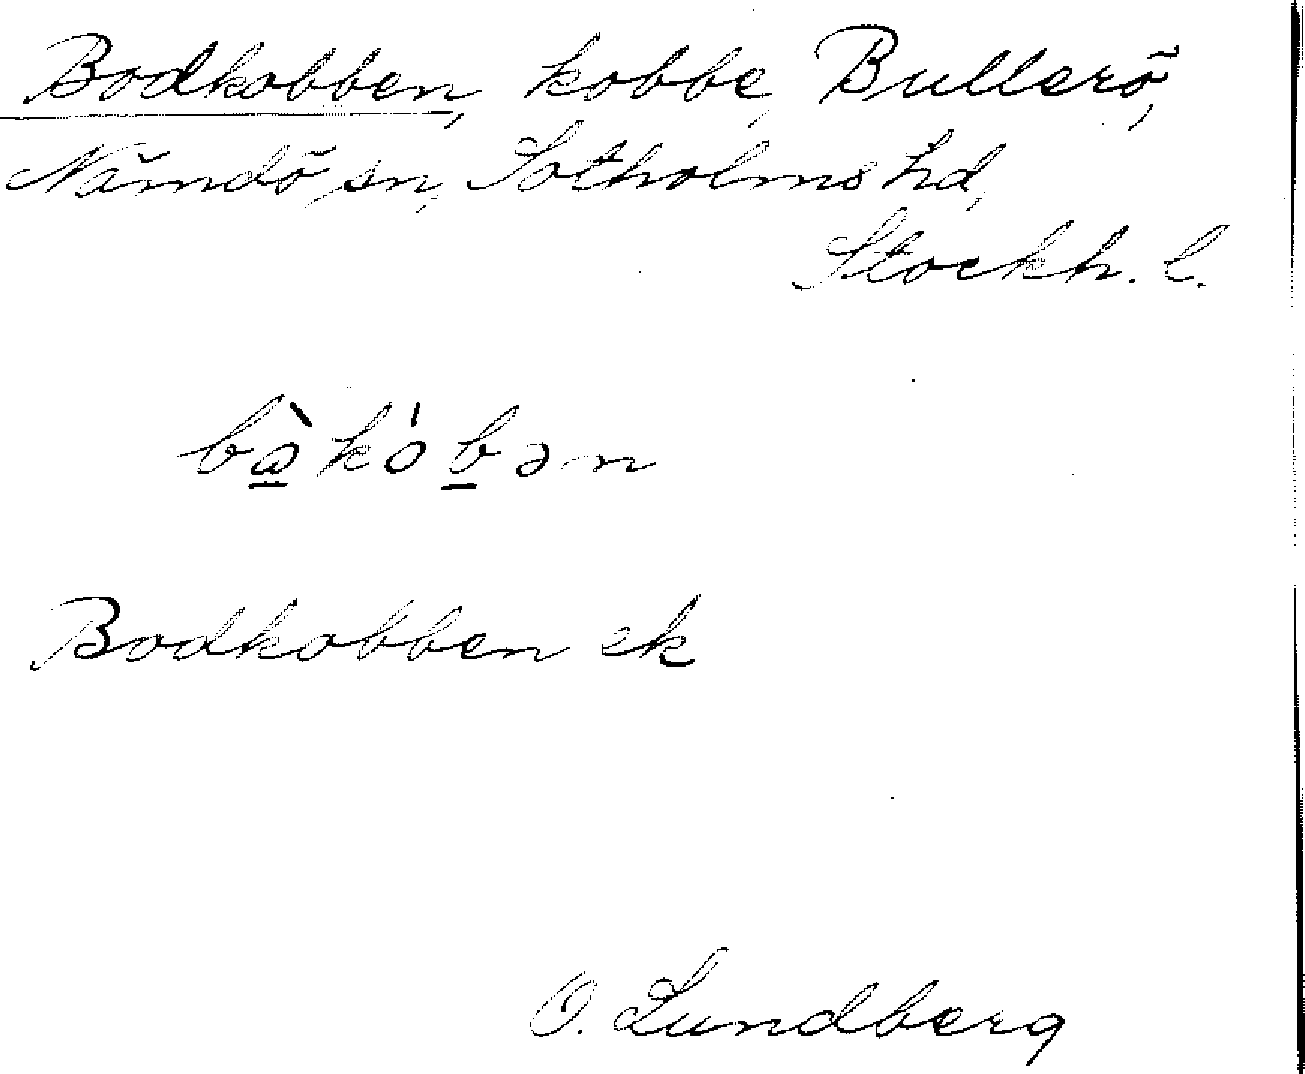 Bodkobben, kobbe, Bullerö,
Nämdö sn, Sotholms hd,
Stockh. l.
bὼkóbən
Bodkobben ek
O. Lundberg